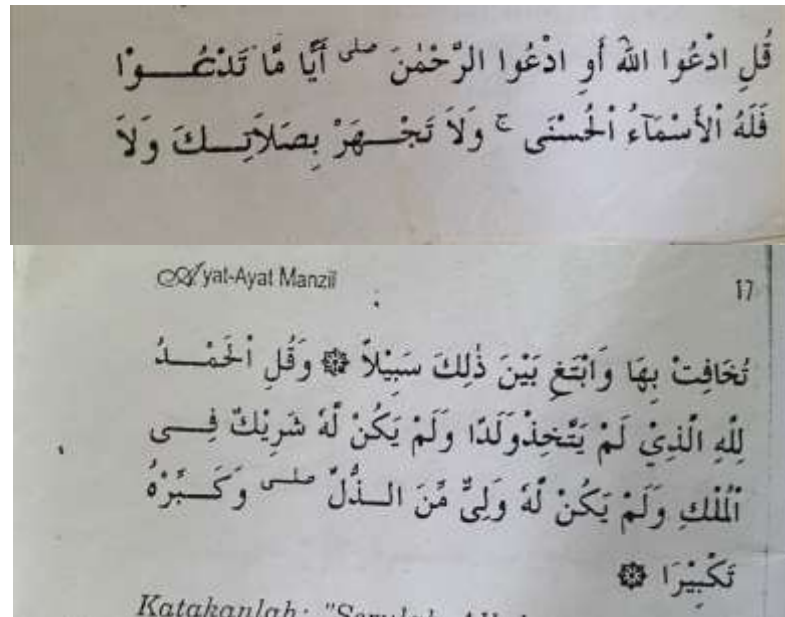 قُلِ ادْعُوا اللهَ أَوِ ادْعُوا الرَّحْمٰنَ صلى أَيًّا مَّا تَدْعُــوْا
فَلَهُ اْلأَسْمَآءُ اْلحُسْنَى ج وَلاَ تَجْــهَرْ بِصَلاَتِــكَ وَلاَ
Ayat-Ayat Manzil 17
تُخَافِتْ بِهَا وَابْتَغِ بَيْنَ ذٰلِكَ سَبِيْلاً ۞ وَقُلِ اْلحَمْــدُ
لِلّٰهِ الَّذِيْ لَمْ يَتَّخِذْوَلَدًا وَلَمْ يَكُنْ لَّهُ شَرِيْكٌ فِــى
اْلمُلْكِ وَلَمْ يَكُنْ لَّهُ وَلِىٌّ مِّنَ الــذُّلِّ صلــى وَكَــبِّرْهُ
تَكْبِيْرًا ۞
Katakanlah: "Serulah